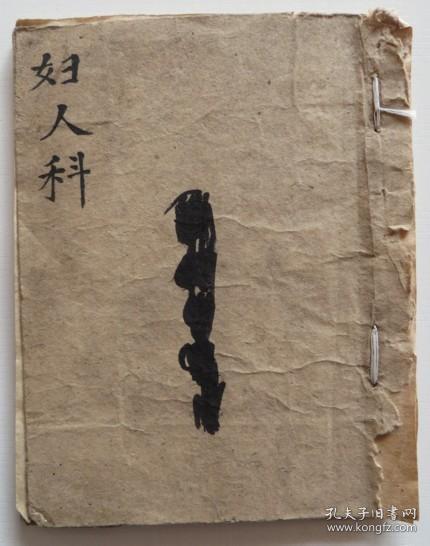 妇人科
孔夫子旧書网
www.kongfz.com